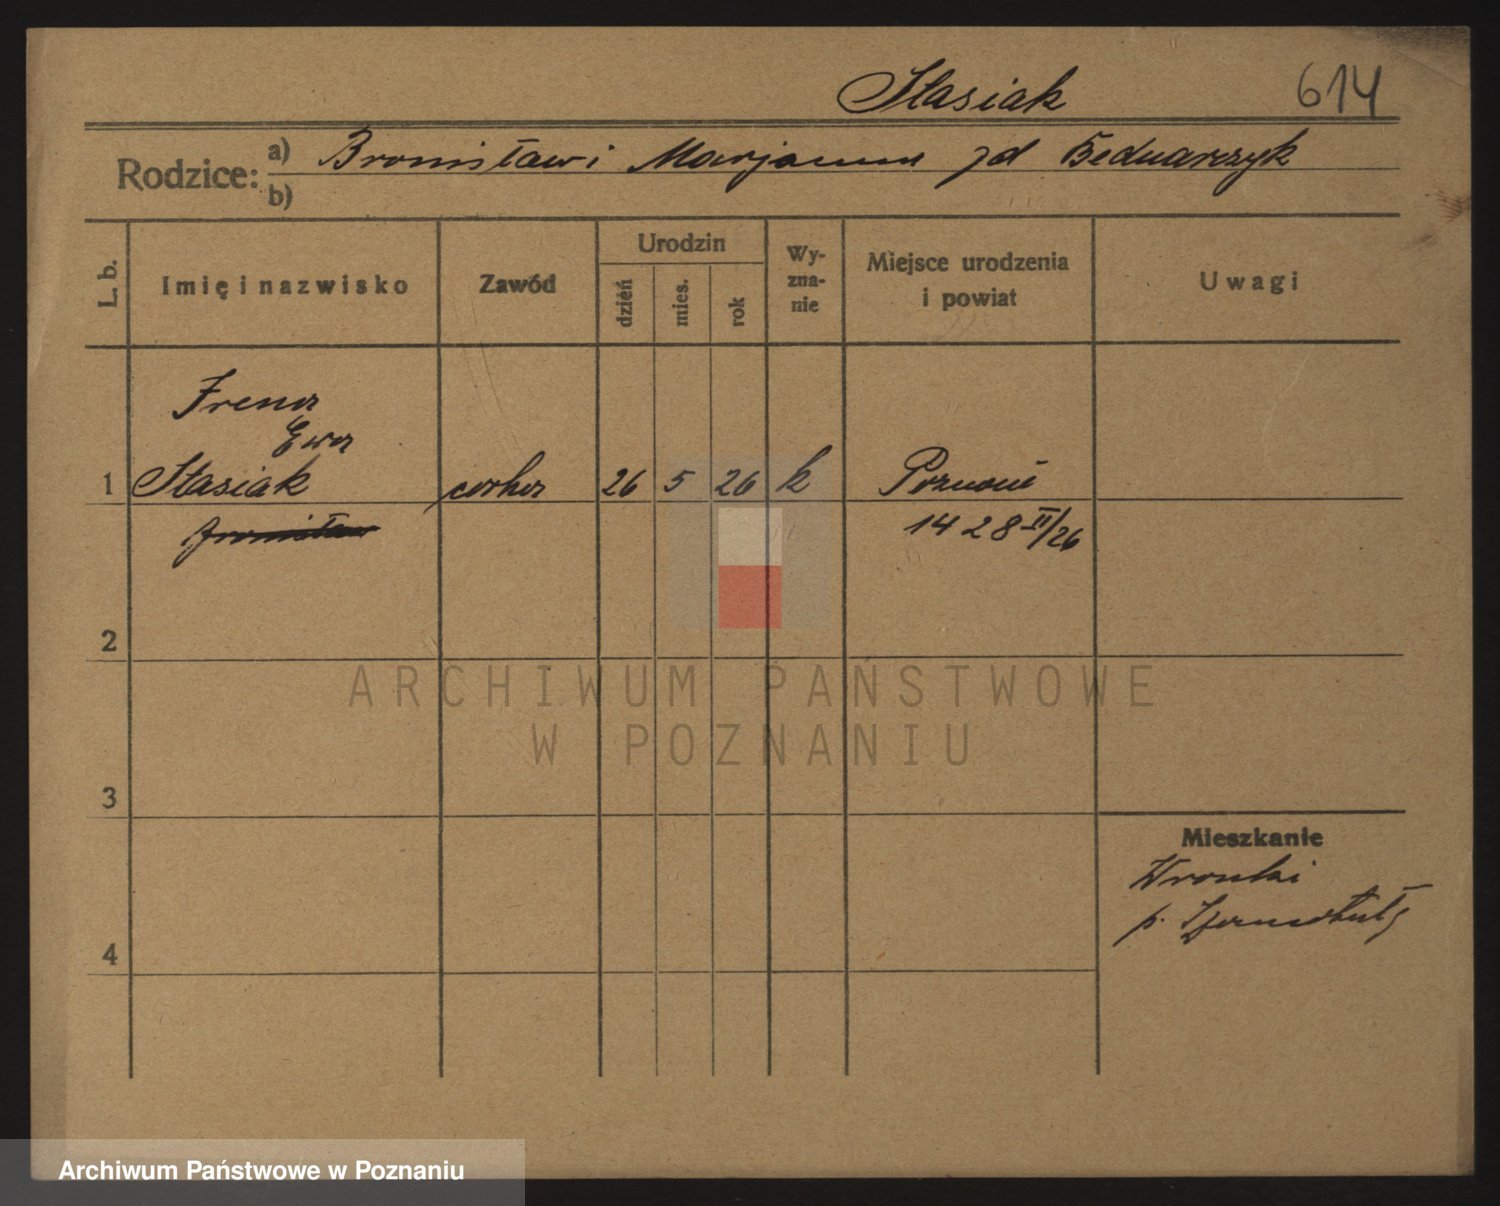 Stasiak 614
Rodzice: a) Bronisław i Marjanna zd Bednarczyk
b)
L. b. Imię i nazwisko Zawód Urodzin dzień mies. rok Wy-
zna-
nie Miejsce urodzenia
i powiat Uwagi
Irena
Ewa
1 Stasiak córka 26 5 26 k Poznań
1428 II/26
2
ARCHIWUM PAŃSTWOWE
W POZNANIU
3
Mieszkanie
Wronki
p. Szamotuły
4
Archiwum Państwowe w Poznaniu